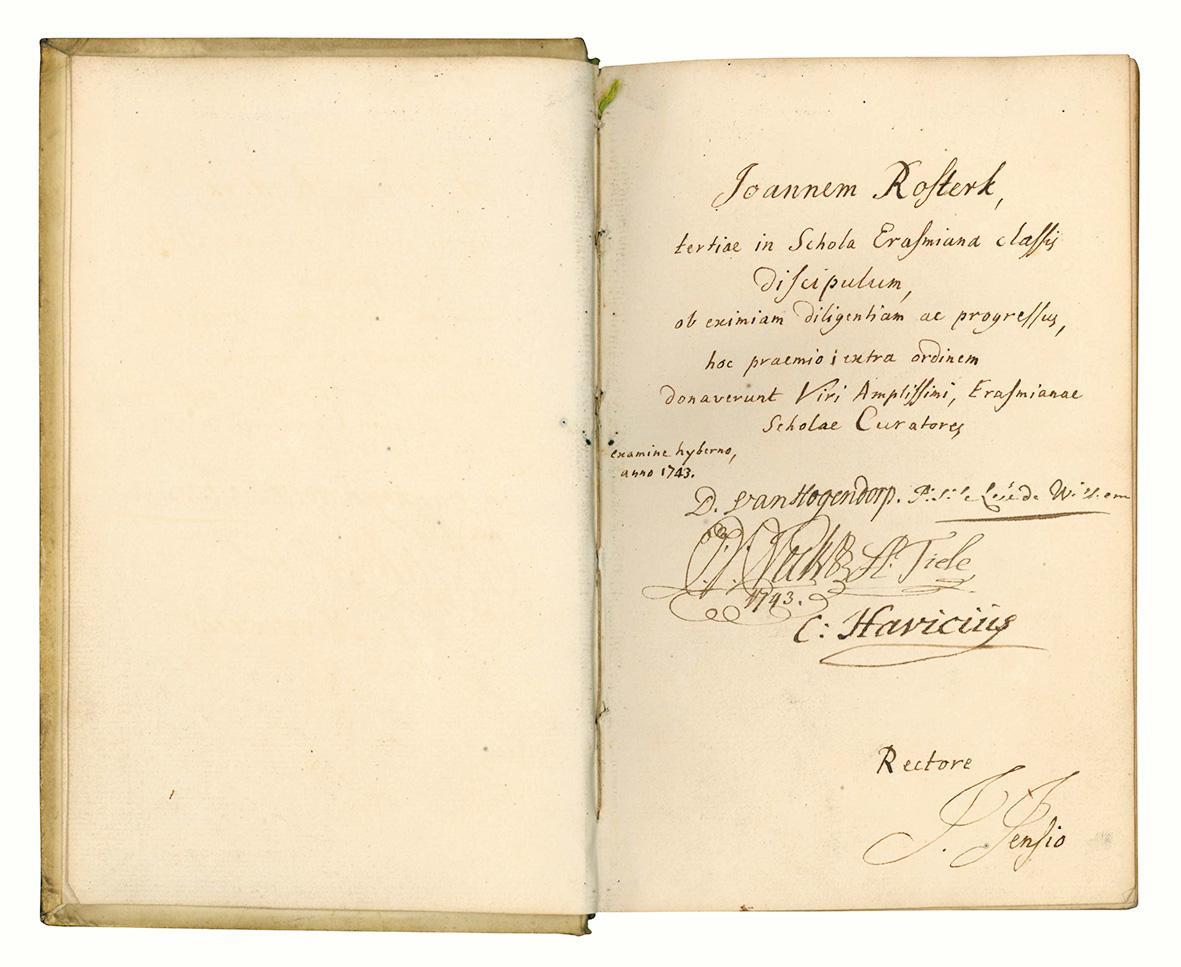 Joannem Kosterk,
tertiae in Schola Eraſmiana claſſis
diſcipulum,
ob eximiam diligentiam ac progreſſus,
hoc praemio extra ordinem
donaverunt Viri Ampliſſimi, Eraſmianae
Scholae Curatores,
examine hyberno,
anno 1743.
D. van Hogendorp.
St. Tiele
1743.
C: Havicius
Rectore
J. Jenſio